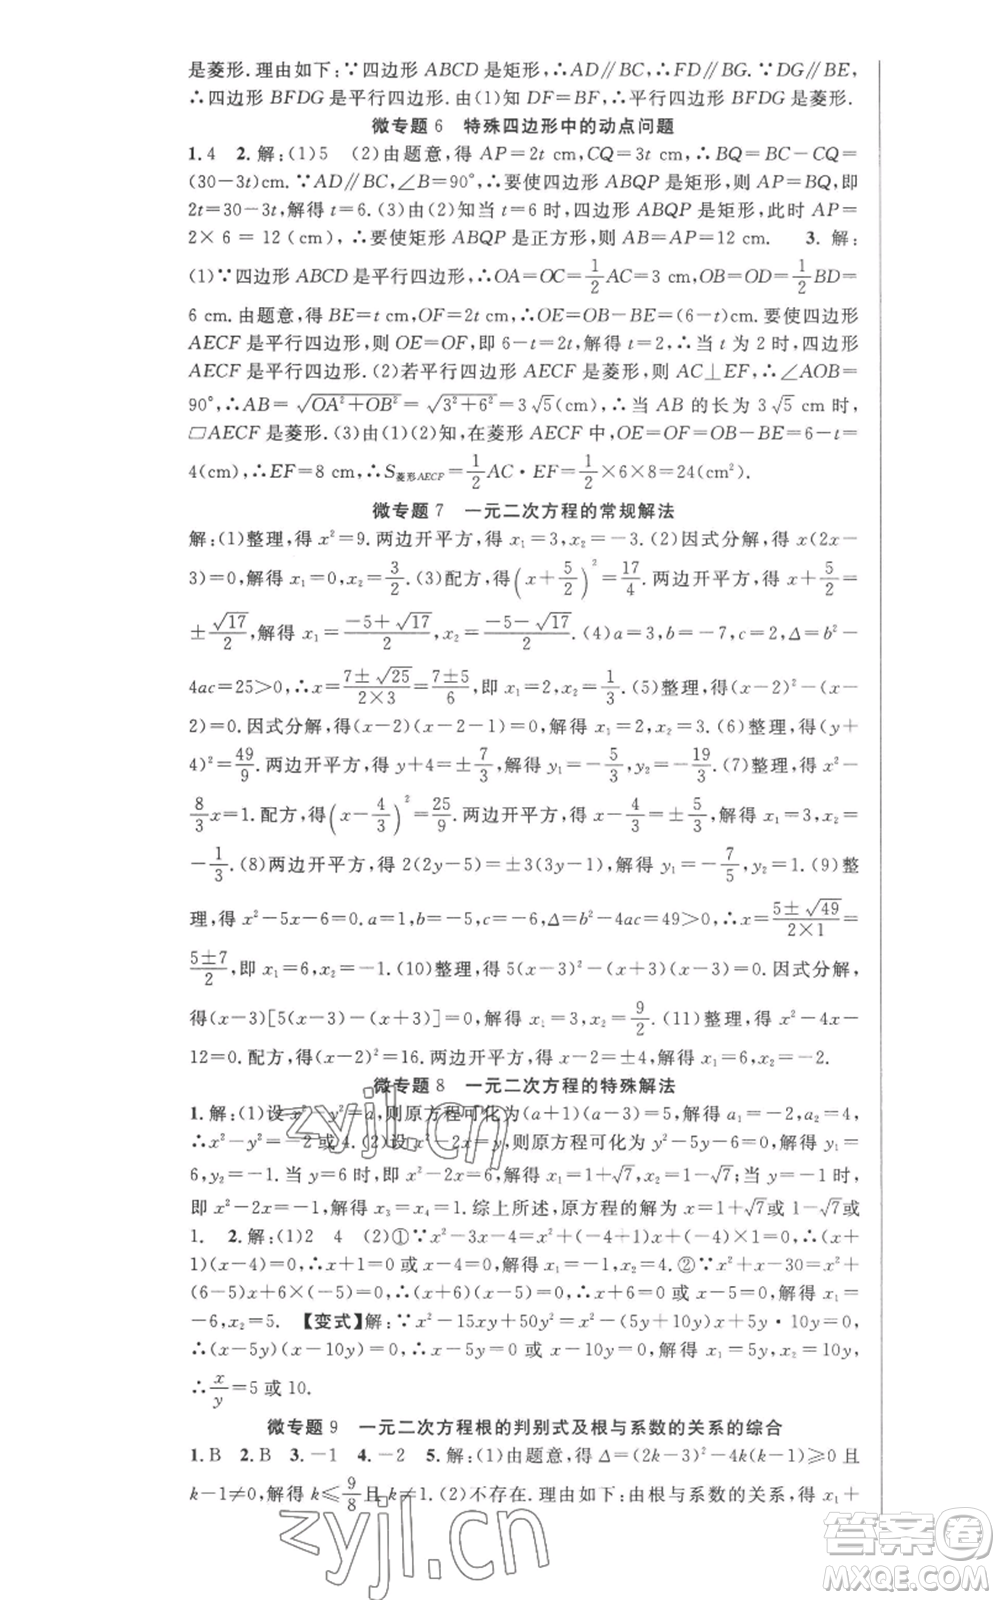 是菱形.理由如下:∵四边形 ABCD 是矩形,∴AD∥BC,∴FD∥BG.∵DG∥BE,
∴四边形 BFDG 是平行四边形.由(1)知 DF=BF,∴平行四边形 BFDG 是菱形.
微专题 6 特殊四边形中的动点问题
1.4 2.解:(1)5 (2)由题意,得 AP=2t cm,CQ=3t cm,∴BQ=BC-CQ=
(30-3t)cm.∵AD∥BC,∠B=90°,∴要使四边形 ABQP 是矩形,则 AP=BQ,即
2t=30-3t,解得 t=6.(3)由(2)知当 t=6 时,四边形 ABQP 是矩形,此时 AP=
2×6=12(cm),∴要使矩形 ABQP 是正方形,则 AB=AP=12 cm. 3.解:
(1)∵四边形 ABCD 是平行四边形,∴OA=OC=1/2AC=3 cm,OB=OD=1/2BD=
6 cm.由题意,得 BE=t cm,OF=2t cm,∴OE=OB-BE=(6-t)cm.要使四边形
AECF 是平行四边形,则 OE=OF,即 6-t=2t,解得 t=2,∴当 t 为 2 时,四边形
AECF 是平行四边形.(2)若平行四边形 AECF 是菱形,则 AC⊥EF,∴∠AOB=
90°,∴AB=√(OA²+OB²)=√(3²+6²)=3√5(cm),∴当 AB 的长为 3√5 cm 时,
▱AECF 是菱形.(3)由(1)(2)知,在菱形 AECF 中,OE=OF=OB-BE=6-t=
4(cm),∴EF=8 cm,∴S菱形AECF=1/2AC·EF=1/2×6×8=24(cm²).
微专题 7 一元二次方程的常规解法
解:(1)整理,得 x²=9.两边开平方,得 x₁=3,x₂=-3.(2)因式分解,得 x(2x-
3)=0,解得 x₁=0,x₂=3/2.(3)配方,得(x+5/2)²=17/4.两边开平方,得 x+5/2=
±√17/2,解得 x₁=(-5+√17)/2,x₂=(-5-√17)/2.(4)a=3,b=-7,c=2,Δ=b²-
4ac=25>0,∴x=(7±√25)/(2×3)=(7±5)/6,即 x₁=2,x₂=1/3.(5)整理,得(x-2)²-(x-
2)=0.因式分解,得(x-2)(x-2-1)=0,解得 x₁=2,x₂=3.(6)整理,得(y+
4)²=49/9.两边开平方,得 y+4=±7/3,解得 y₁=-5/3,y₂=-19/3.(7)整理,得 x²-
8/3x=1.配方,得(x-4/3)²=25/9.两边开平方,得 x-4/3=±5/3,解得 x₁=3,x₂=
-1/3.(8)两边开平方,得 2(2y-5)=±3(3y-1),解得 y₁=-7/5,y₂=1.(9)整
理,得 x²-5x-6=0.a=1,b=-5,c=-6,Δ=b²-4ac=49>0,∴x=(5±√49)/(2×1)=
(5±7)/2,即 x₁=6,x₂=-1.(10)整理,得 5(x-3)²-(x+3)(x-3)=0.因式分解,
得(x-3)[5(x-3)-(x+3)]=0,解得 x₁=3,x₂=9/2.(11)整理,得 x²-4x-
12=0.配方,得(x-2)²=16.两边开平方,得 x-2=±4,解得 x₁=6,x₂=-2.
微专题 8 一元二次方程的特殊解法
1.解:(1)设 x²-y²=a,则原方程可化为(a+1)(a-3)=5,解得 a₁=-2,a₂=4,
∴x²-y²=-2 或 4.(2)设 x²-2x=y,则原方程可化为 y²-5y-6=0,解得 y₁=
6,y₂=-1.当 y=6 时,即 x²-2x=6,解得 x₁=1+√7,x₂=1-√7;当 y=-1 时,
即 x²-2x=-1,解得 x₃=x₄=1.综上所述,原方程的解为 x=1+√7或 1-√7或
1. 2.解:(1)2 4 (2)①∵x²-3x-4=x²+(1-4)x+1×(-4)=0,∴(x+
1)(x-4)=0,∴x+1=0 或 x-4=0,解得 x₁=-1,x₂=4.②∵x²+x-30=x²+
(6-5)x+6×(-5)=0,∴(x+6)(x-5)=0,∴x+6=0 或 x-5=0,解得 x₁=
-6,x₂=5. 【变式】解:∵x²-15xy+50y²=x²-(5y+10y)x+5y·10y=0,
∴(x-5y)(x-10y)=0,∴x-5y=0 或 x-10y=0,解得 x₁=5y,x₂=10y,
∴x/y=5 或 10.
微专题 9 一元二次方程根的判别式及根与系数的关系的综合
1.B 2.B 3.-1 4.-2 5.解:(1)由题意,得 Δ=(2k-3)²-4k(k-1)≥0 且
k-1≠0,解得 k≤9/8 且 k≠1.(2)不存在.理由如下:由根与系数的关系,得 x₁+
zyjl.cn
zyjl.cn
答案圈
MXQE.COM